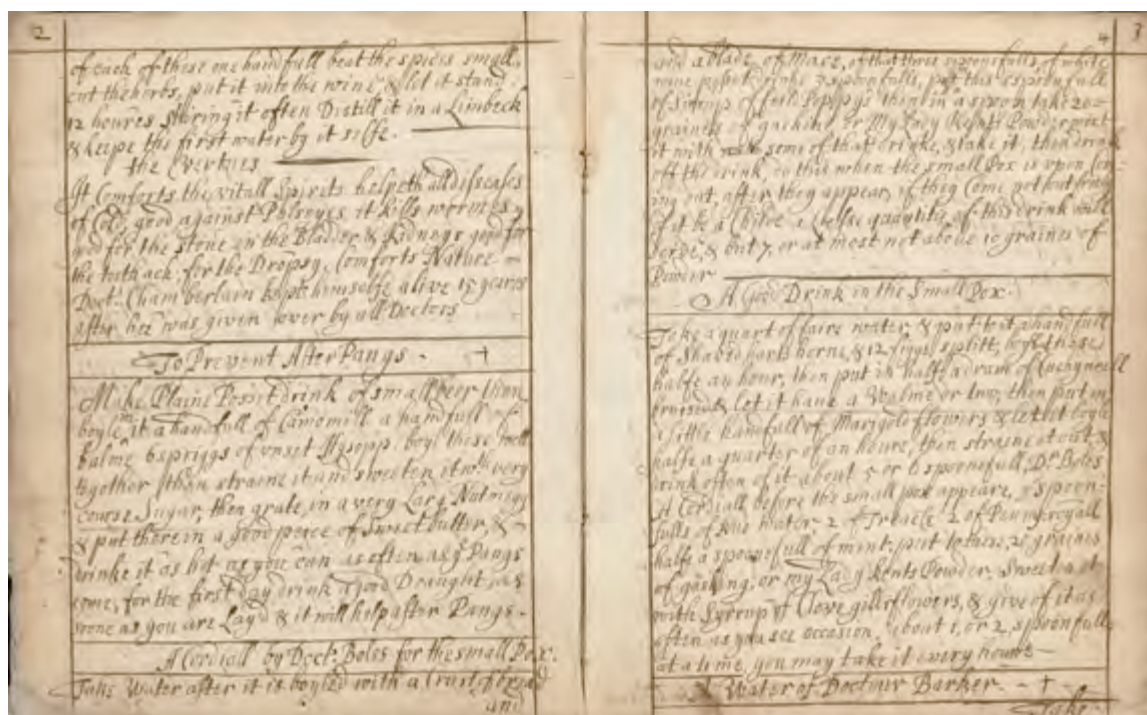 2
of each of these one handfull beat the spices small,
cut the herbs, put it into the wine, & let it stand
12 houres stiring it often Distill it in a Limbeck
& keepe the first water by it selfe.
the Vertues
It Comforts the vitall Spirits helpeth all diseases
of Cold, good against Palseyes, it kills wormes,
good for the stone in the Bladder, & Kidneys good for
the tooth ach, for the Dropsy, Comforts Nature
Doct: Chamberlain kept himselfe alive 15 yeares
after hee was given over by all Doctors
To Prevent After Pangs - +
Make Plaine Possit drink of small beer then
boyle in it a handfull of Camomill a handfull of
balme 6 spriggs of unset Hysopp, boyl these well
together then straine it and sweeten it wth very
course Sugar, then grate, in a very Larg Nutmegg
& put therein a good peece of Sweet butter, &
drinke it as hot as you can as often as ye Pangs
come, for the first day drink a good Draught, as
soone as you are Layd & it will help after Pangs -
A Cordiall by Doct: Boles for the small Pox.
Take Water after it is boyled with a Crust of bread
and
4 3
and a blade of Mace, of that three spoonfulls, of white
wine possit drinke 3 spoonfulls, put this 1 spoonfull
of Sirrup of feild Poppys then in a spoon take 20
graines of gaskins or My Lady Kents Powder, meet
it with some of that drinke, & take it, then drink
off the drink, do this when the small Pox is upon com
ing out, after they appear, if they Come not out
if it be a Childe halfe quantity of this drink will
serve, & but 7, or at most not above 10 graines of
Powder
A Good Drink in the Small Pox.
Take a quart of faire water, & put to it a handfull
of Shaved harts horne, & 12 figgs splitt, boyle these
halfe an hour, then put in halfe a dram of
bruised & let it have a Walme or two, then put in
a little handfull of Marigold flowers & let it boyle
halfe a quarter of an houre, then straine it out &
drink often of it about 5 or 6 spoonefull, Dr Boles
A Cordiall before the small pox appeare, spoon-
fulls of water 2 of Treacle 2 of Pennyroyall
halfe a spoonefull of mint, put to these, graines
of gaskins, or my Lady Kents Powder. Sweeten it
with Syrrup of Clove gilliflowers, & give of it as
often as you see occasion, about 1, or 2, spoonfulls
at a time, you may take it every houre
A Water of Doctour Barker. - +
Take